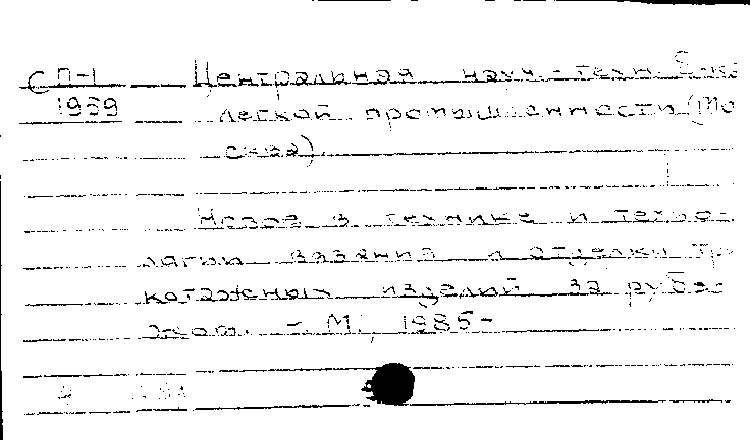 СП-1 Центральная науч.-техн. б-ка
1939 легкой промышленности (Мо
сква).
Новое в технике и техно-
логии вязания и отделки три
котажных изделий за рубе-
жом. - М., 1985-